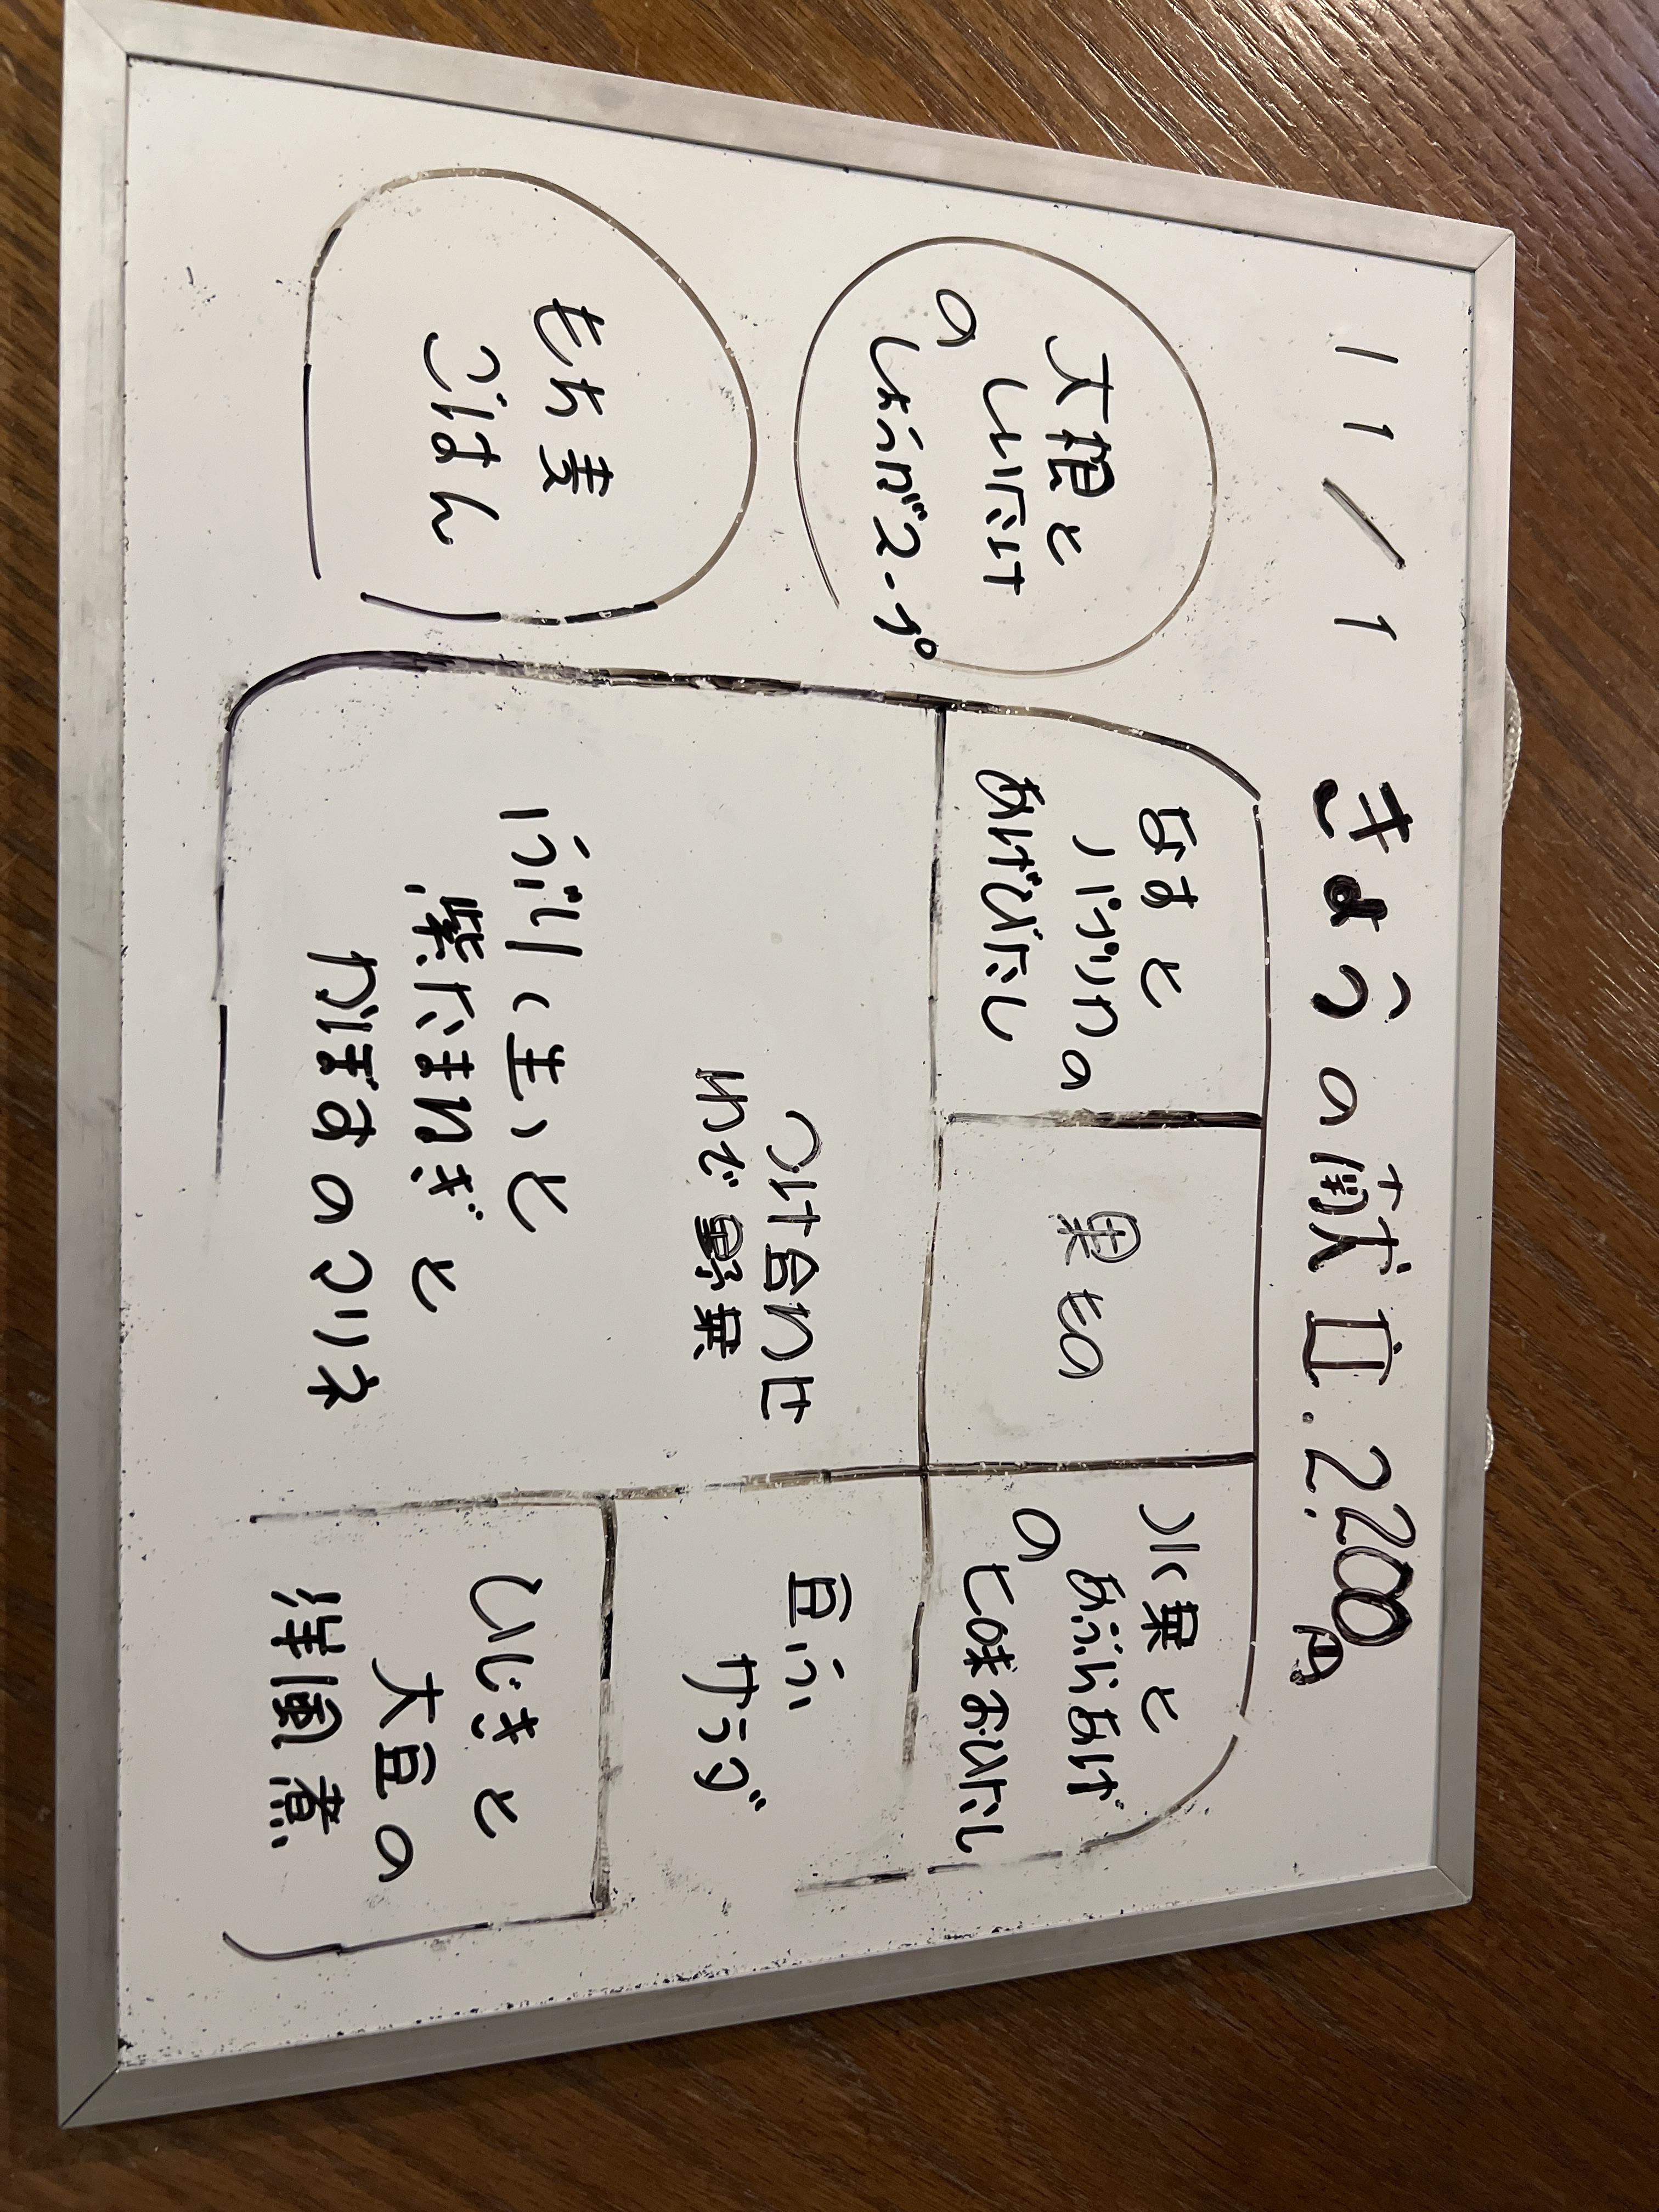 11/1 きょうの献立.2.200円
大根と
しいたけ
のしょうがスープ
もち麦
ごはん
なすと
パプリカの
あげびたし
果もの
水菜と
あぶらあげ
の七味おひたし
つけ合わせ
ゆで野菜
ぶり(生)と
紫たまねぎと
かぼすのマリネ
豆ふ
サラダ
ひじきと
大豆の
洋風煮